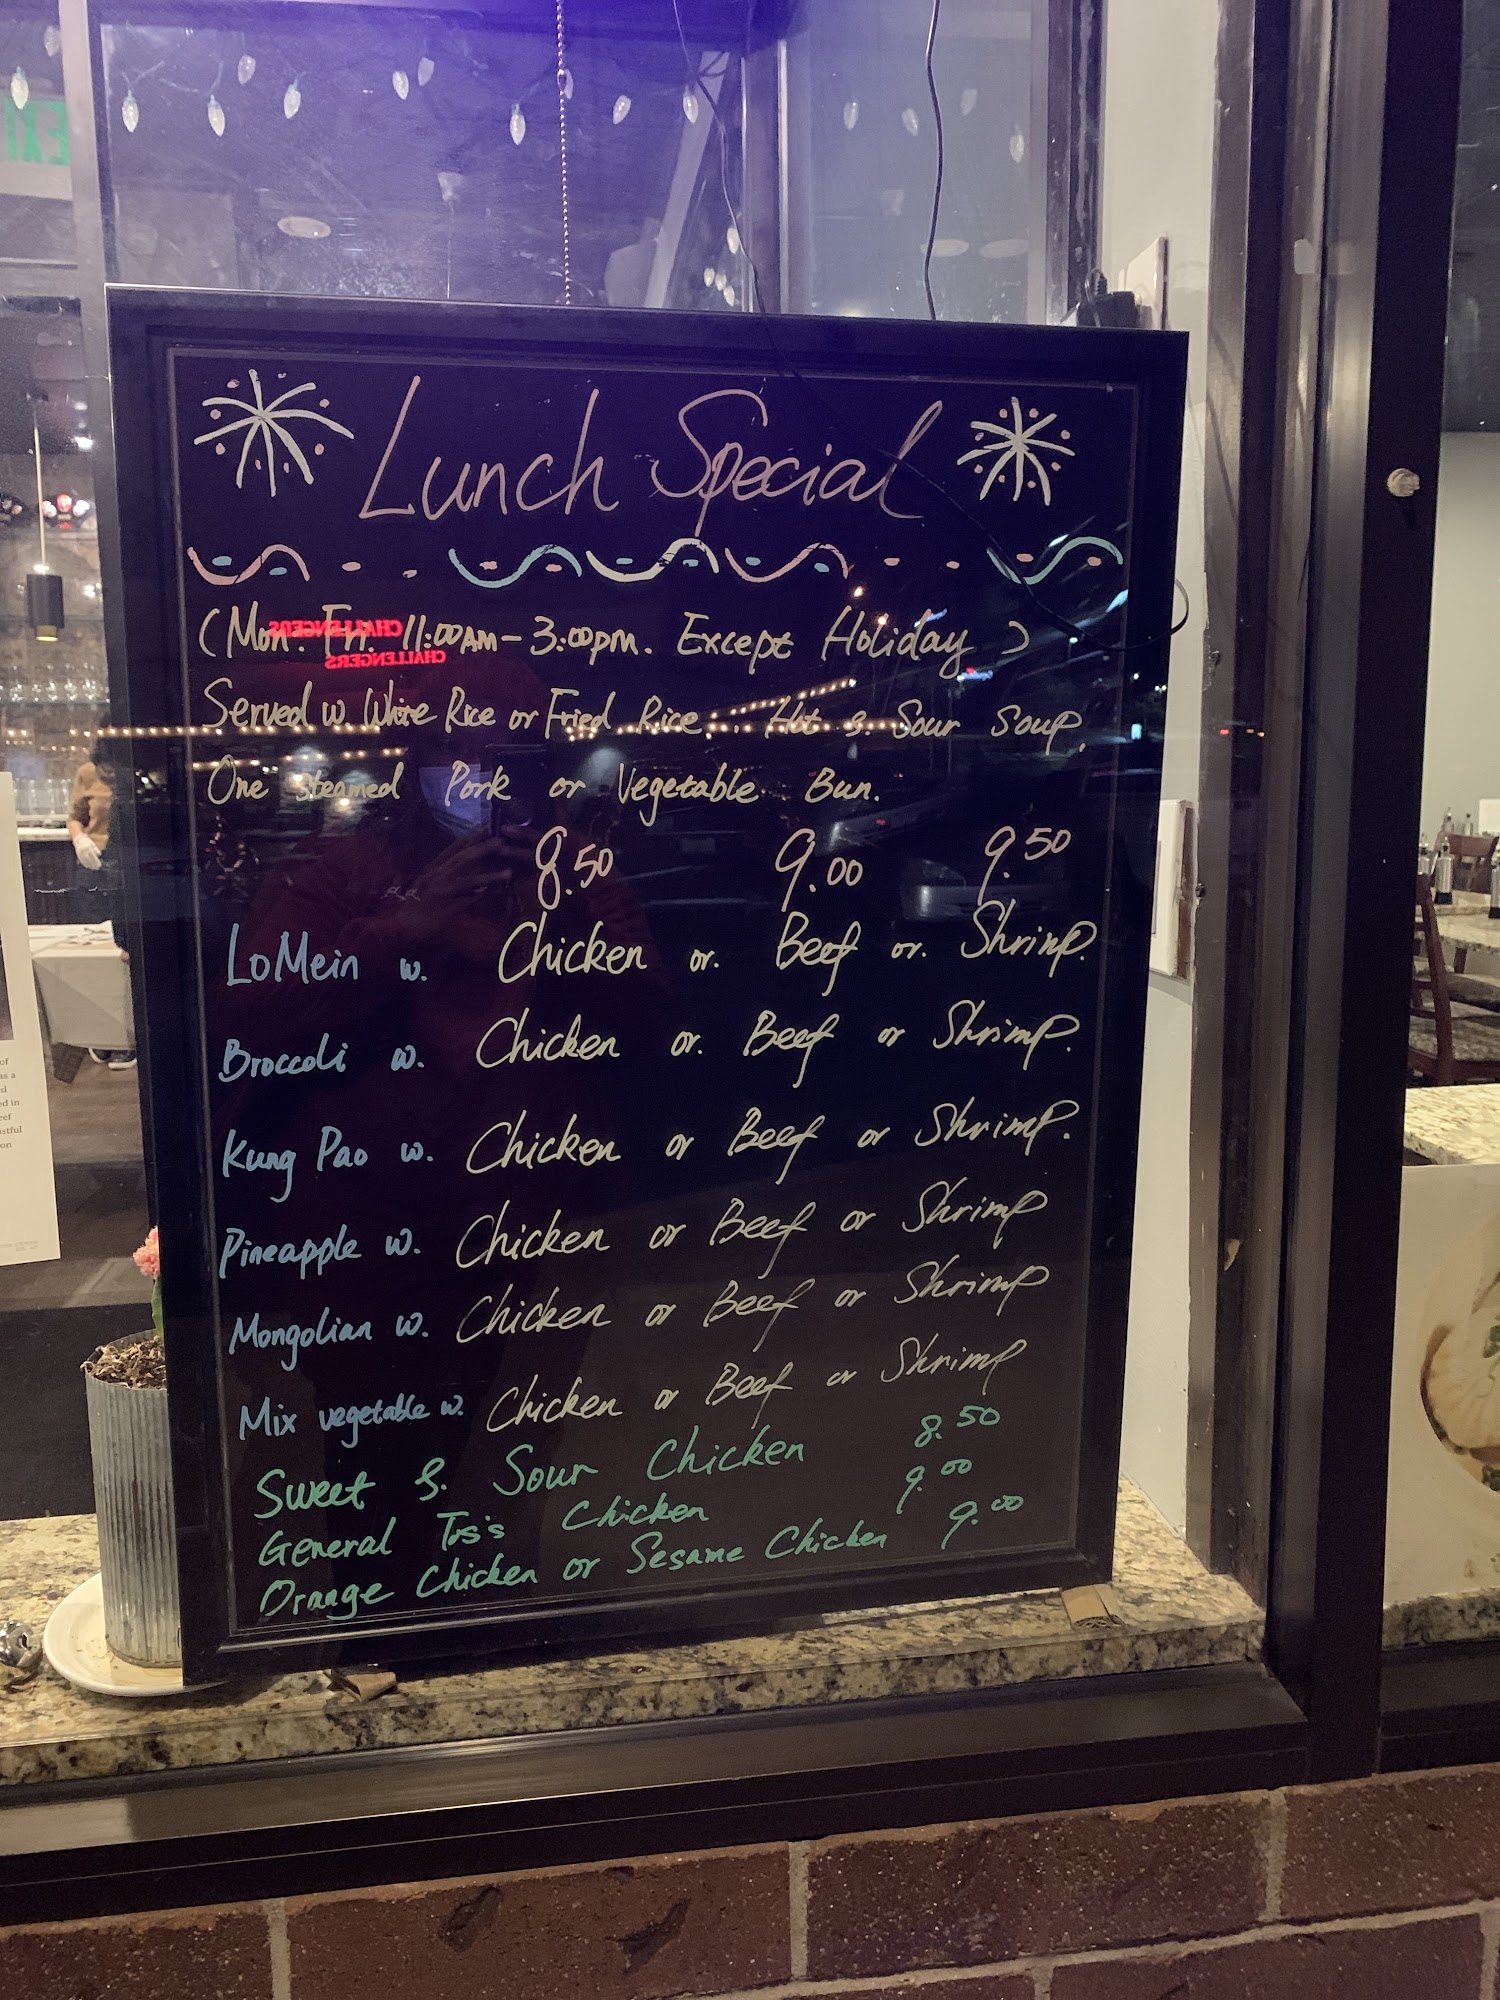 Lunch Special
(Mon. Fri. 11:00AM-3:00pm. Except Holiday)
Served w White Rice or Fried Rice, Hot & Sour Soup,
One steamed Pork or Vegetable Bun.
8.50 9.00 9.50
LoMein w. Chicken or. Beef or. Shrimp.
Broccoli w. Chicken or. Beef or Shrimp.
Kung Pao w. Chicken or Beef or Shrimp.
Pineapple w. Chicken or Beef or Shrimp
Mongolian w. Chicken or Beef or Shrimp
Mix vegetable w. Chicken or Beef or Shrimp
Sweet & Sour Chicken 8.50
General Tso's Chicken 9.00
Orange Chicken or Sesame Chicken 9.00
CHALLENGERS
CHALLENGERS
EXIT